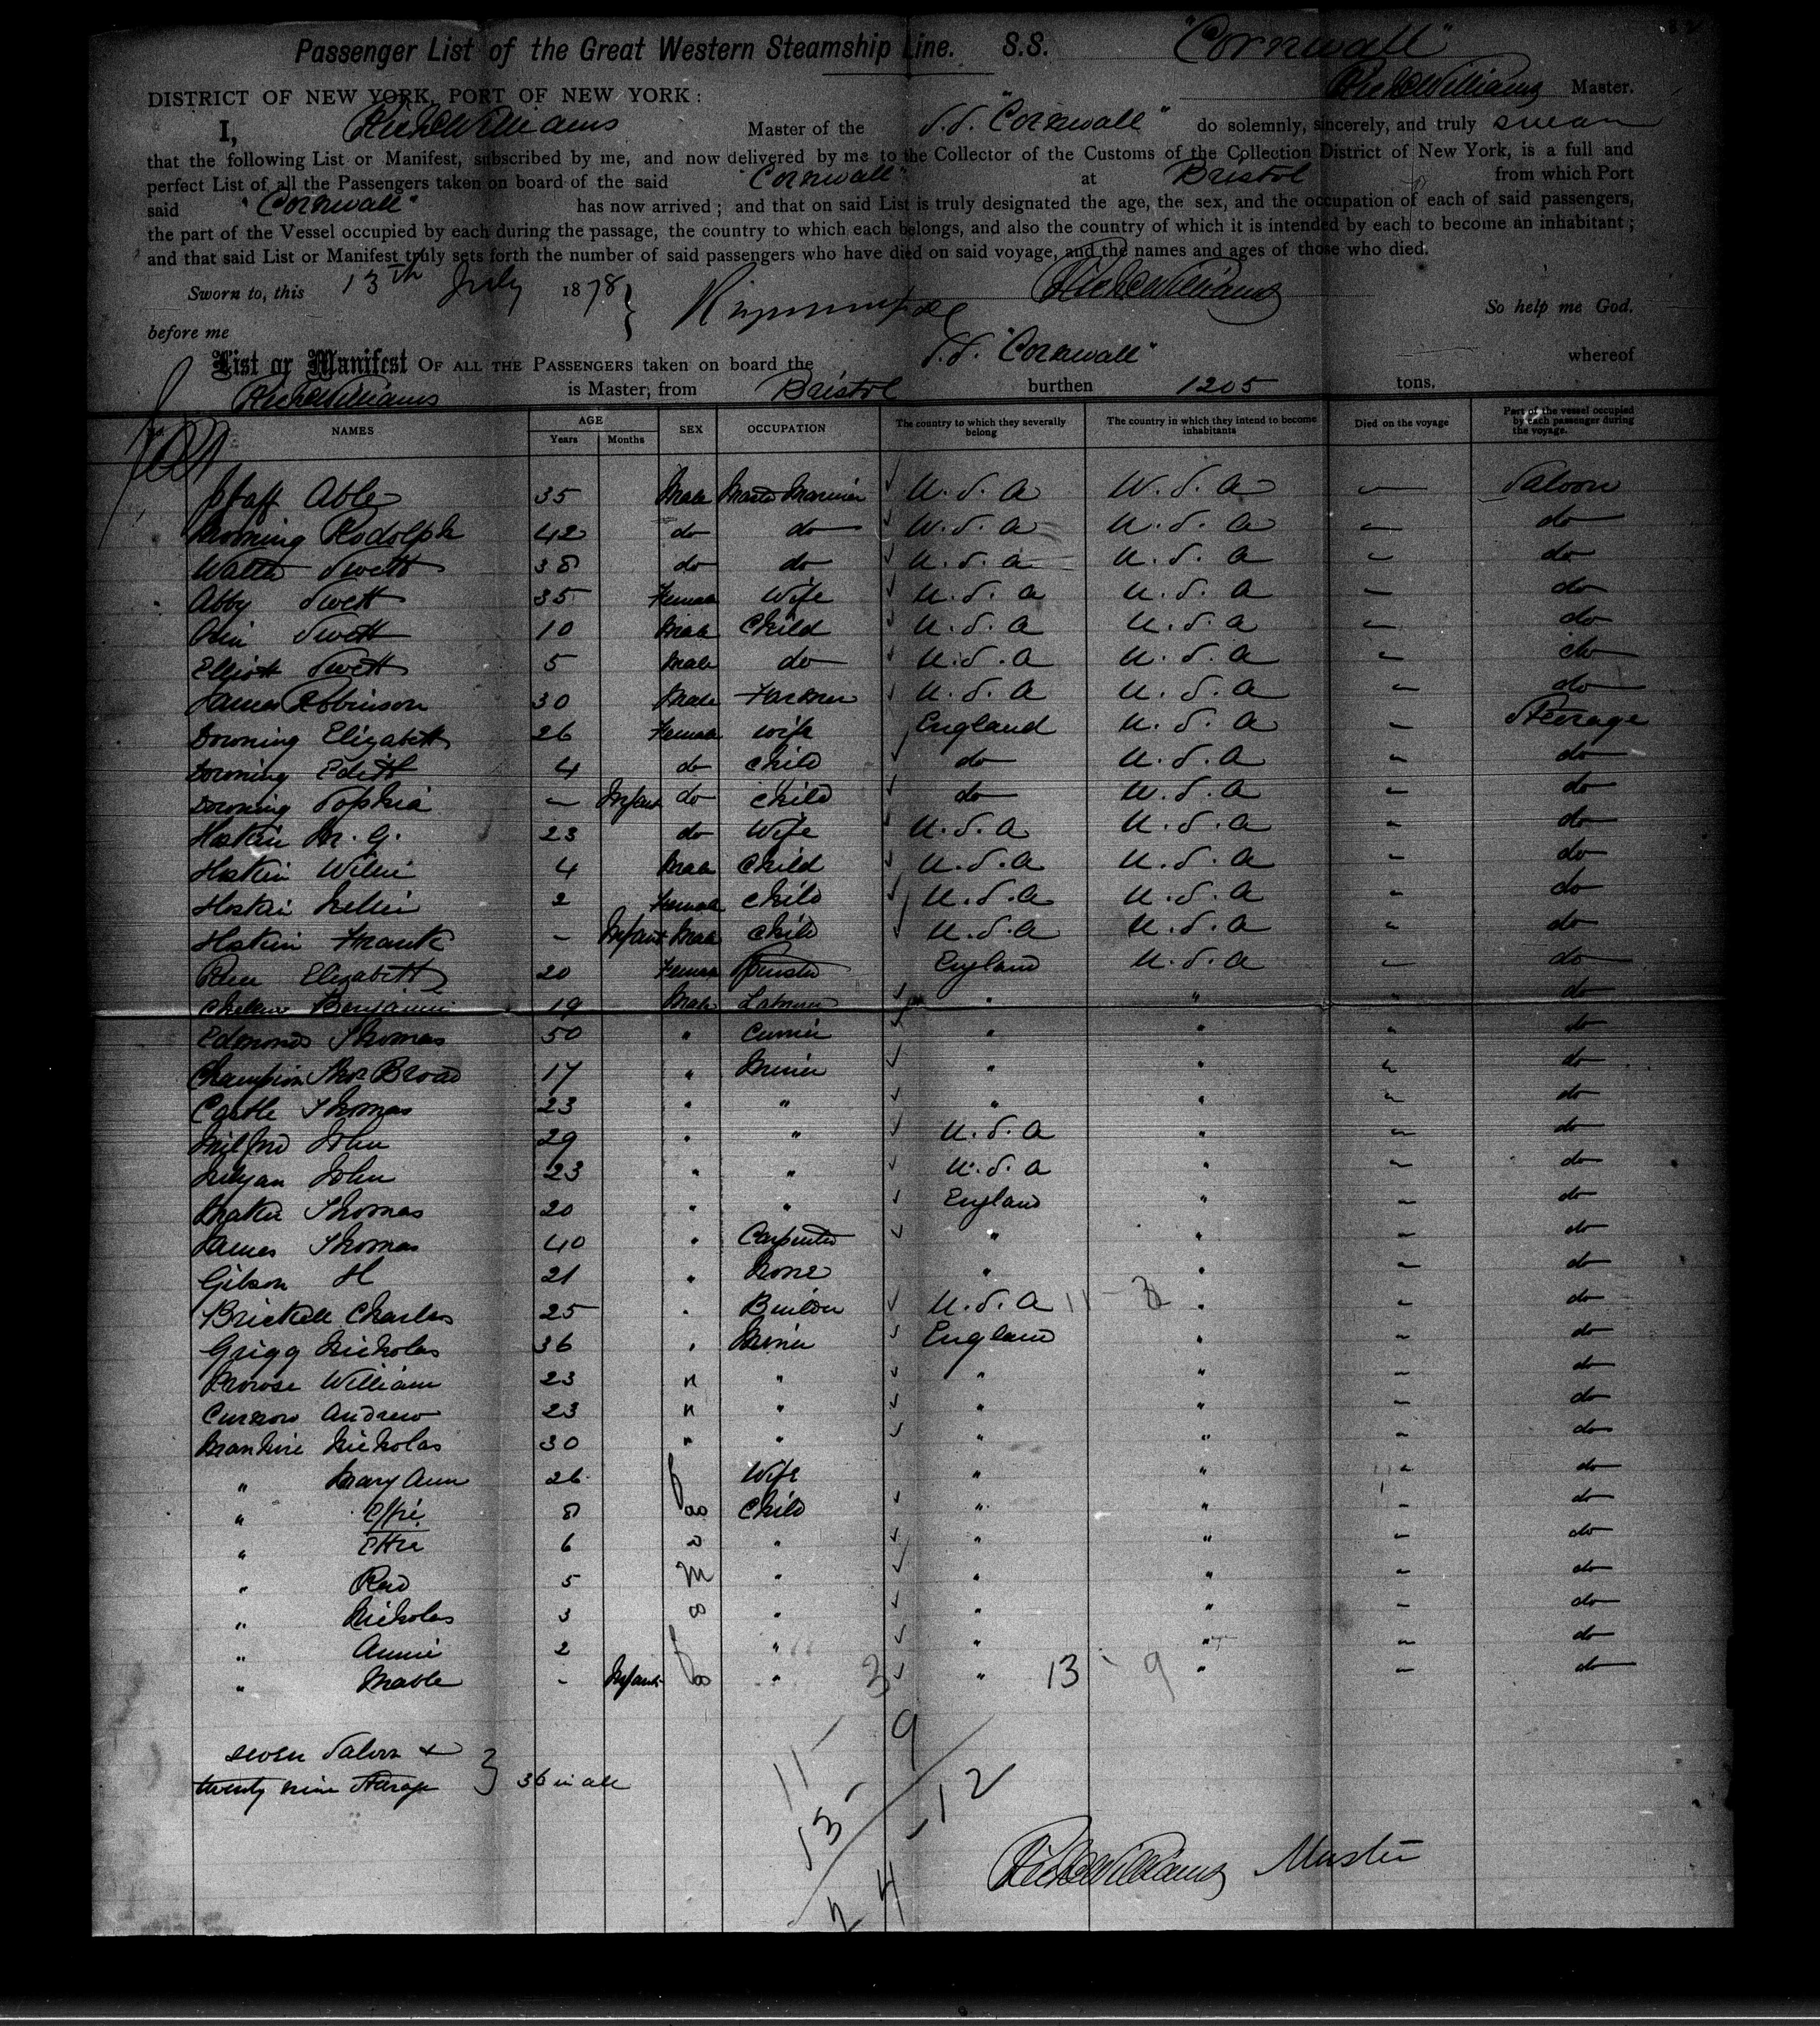 Passenger List of the Great Western Steamship Line. S.S. "Cornwall"
DISTRICT OF NEW YORK, PORT OF NEW YORK: Richd Williams Master.
I, Richd Williams Master of the S.S. "Cornwall" do solemnly, sincerely, and truly swear
that the following List or Manifest, subscribed by me, and now delivered by me to the Collector of the Customs of the Collection District of New York, is a full and
perfect List of all the Passengers taken on board of the said "Cornwall" at Bristol from which Port
said "Cornwall" has now arrived; and that on said List is truly designated the age, the sex, and the occupation of each of said passengers,
the part of the Vessel occupied by each during the passage, the country to which each belongs, and also the country of which it is intended by each to become an inhabitant;
and that said List or Manifest truly sets forth the number of said passengers who have died on said voyage, and the names and ages of those who died.
Sworn to, this 13th July 1878 } Richd Williams So help me God.
before me
List or Manifest OF ALL THE PASSENGERS taken on board the S.S. "Cornwall" whereof
Richd Williams is Master, from Bristol burthen 1205 tons.
NAMES AGE Years Months SEX OCCUPATION The country to which they severally belong The country in which they intend to become inhabitants Died on the voyage Part of the vessel occupied by each passenger during the voyage.
Pfaff Able 35 Male Master Mariner U.S.A U.S.A — Saloon
Rodolph 42 do do U.S.A U.S.A — do
Walter Swett 38 do do U.S.A U.S.A — do
Abby Swett 35 Female Wife U.S.A U.S.A — do
Swett 10 Male Child U.S.A U.S.A — do
Elliott Swett 5 Male do U.S.A U.S.A — do
James Robinson 30 Male Farmer U.S.A U.S.A — do
Downing Elizabeth 26 Female wife England U.S.A — Steerage
Downing Edith 4 do child do U.S.A — do
Downing Sophia — Infant do child do U.S.A — do
Hoskin M. G. 23 do Wife U.S.A U.S.A — do
Hoskin Willie 4 Male Child U.S.A U.S.A — do
Hoskin Nellie 2 Female Child U.S.A U.S.A — do
Hoskin Frank — Infant Male Child U.S.A U.S.A — do
Elizabeth 20 Female England U.S.A — do
Benjamin 19 Male Labourer " " " do
Edmonds Thomas 50 " Currier " " " do
Champion Thos Broad 17 " Miner " " " do
Castle Thomas 23 " " " " " do
John 29 " " U.S.A " — do
John 23 " " U.S.A " — do
Thomas 20 " " England " — do
James Thomas 40 " Carpenter " " — do
Gibson H 21 " None " " — do
Brickell Charles 25 " Builder U.S.A 11 - 3 " — do
Grigg Nicholas 36 " Miner England " — do
Prowse William 23 " " " " — do
Curnow Andrew 23 " " " " — do
Nicholas 30 " " " " — do
" Mary Ann 26 f Wife " " — do
" Effie 8 do Child " " — do
" Ettie 6 " " " — do
" 5 M " " " — do
" Nicholas 3 do " " " — do
" Annie 2 f " " " — do
" Mable - Infant do " 3 " 13 - 9 " — do
seven Saloon &
twenty nine Steerage } 36 in all
9
11
13
12
24
Richd Williams Master